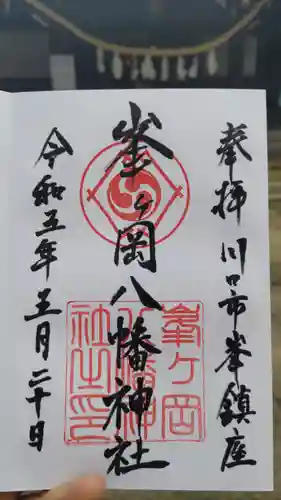 奉拝 川口市峯鎮座
峯ヶ岡八幡神社
峯ヶ岡
八幡神
社之印
令和五年三月二十日